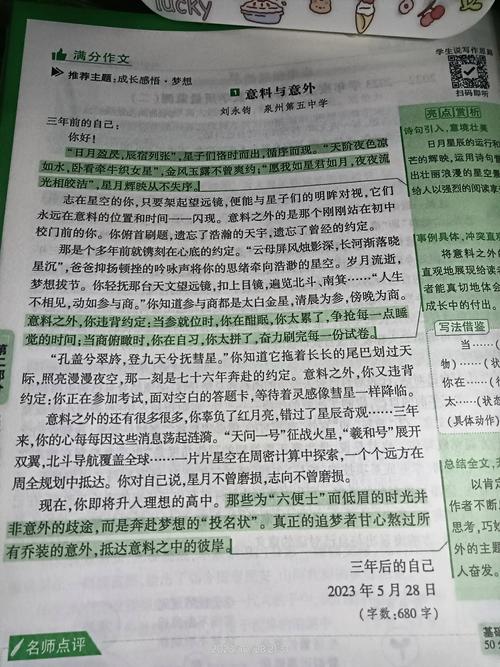 lucky
满分作文
推荐主题:成长感悟·梦想
学生说写作思路
扫码即听
1 意料与意外
刘永钧 泉州第五中学
三年前的自己:
你好!
“日月盈昃,辰宿列张”,星子们恪时而出,循序而现。“天阶夜色凉
如水,卧看牵牛织女星”,金风玉露不曾爽约;“愿我如星君如月,夜夜流
光相皎洁”,星月辉映从不失序。
志在星空的你,只要架起望远镜,便能与星子们的明眸对视,它们
永远在意料的位置和时间一一闪现。意料之外的是那个刚刚站在初中
校门前的你。你俯首刷题,遗忘了浩瀚的天宇,遗忘了曾经的约定。
那是个多年前就镌刻在心底的约定。“云母屏风烛影深,长河渐落晓
星沉”,爸爸抑扬顿挫的吟咏声将你的思绪牵向浩渺的星空。岁月流逝,
梦想拔节。你轻抚那台天文望远镜,扣上目镜,遍览北斗、南箕……“人生
不相见,动如参与商。”你知道参与商都是太白金星,清晨为参,傍晚为商。
意料之外,你违背约定:当参就位时,你在酣眠,你太累了,争抢每一点睡
觉的时间;当商俯瞰时,你在自习,你太拼了,奋力刷完每一份试卷。
“孔盖兮翠旍,登九天兮抚彗星。”你知道它拖着长长的尾巴划过天
际,照亮漫漫夜空,那一刻是七十六年奔赴的约定。意料之外,你又违背
约定:你正在参加考试,面对空白的答题卡,等待着灵感像彗星一样降临。
意料之外的还有很多很多,你辜负了红月亮,错过了星辰奇观……三年
来,你的心每每因这些消息荡起涟漪。“天问一号”征战火星,“羲和号”展开
双翼,北斗导航覆盖全球……一片片星空在周密计算中探索,一个个远方在
周全规划中抵达。你对自己说,星月不曾磨损,志向不曾磨损。
现在,你即将升入理想的高中。那些为“六便士”而低眉的时光并
非意外的歧途,而是奔赴梦想的“投名状”。真正的追梦者甘心熬过所
有乔装的意外,抵达意料之中的彼岸。
三年后的自己
2023年5月28日
(字数:680字)
名师点评
亮点赏析
诗句引入,意境壮美
日月星辰的运行和
芒的辉映,运用诗句
出壮丽浪漫的星空景
给人以强烈的阅读享
事例具体,冲突直观
将意料之外的
直观地展现给读
者能真切地体会
成长中的付出。
写法借鉴
当……
物)……
你在……
太……(状态
(具体动作)
总结全文,
以肯定
作者不断
思考,巧
外的主题
人奋发。
基础
50分